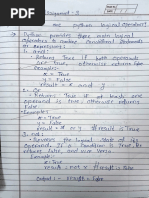 Assignment - 3
are python logical operators?
→ Python provides three main logical
operators to combine conditional statements
or expressions:
1. and
- Returns True if both operands
are True, otherwise returns False
- Example:
x = True
y = False
result = x and y # result is False
2. or
- Returns True if at least one
operand is True, otherwise returns
False
- Example:
x = True
y = False
result = x or y # Result is True
3. not
- Reverses the logical state of its
operand. If a condition is True, not
returns False, and vice versa
- Example:
x = True
result = not x # Result is False
Output :- Result = False